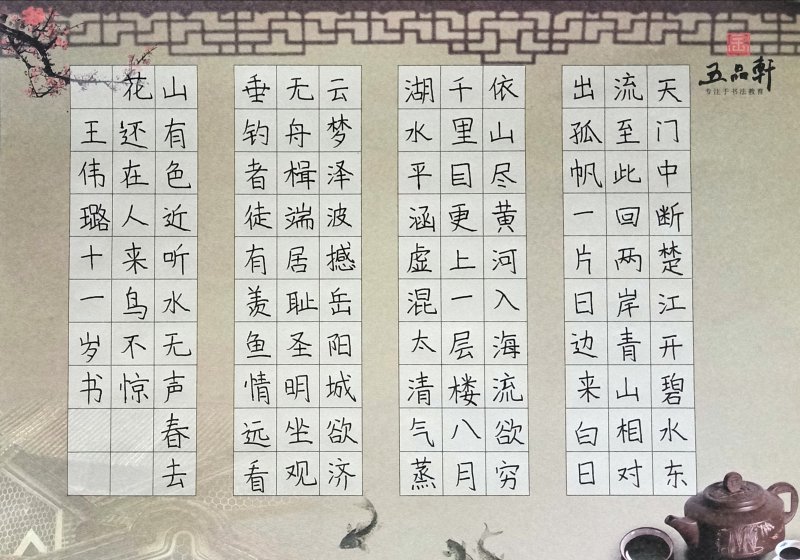 五品軒
专注于书法教育
天门中断楚江开碧水东
流至此回两岸青山相对
出孤帆一片日边来白日
依山尽黄河入海流欲穷
千里目更上一层楼八月
湖水平涵虚混太清气蒸
云梦泽波撼岳阳城欲济
无舟楫端居耻圣明坐观
垂钓者徒有羡鱼情远看
山有色近听水无声春去
花还在人来鸟不惊
王伟璐十一岁书